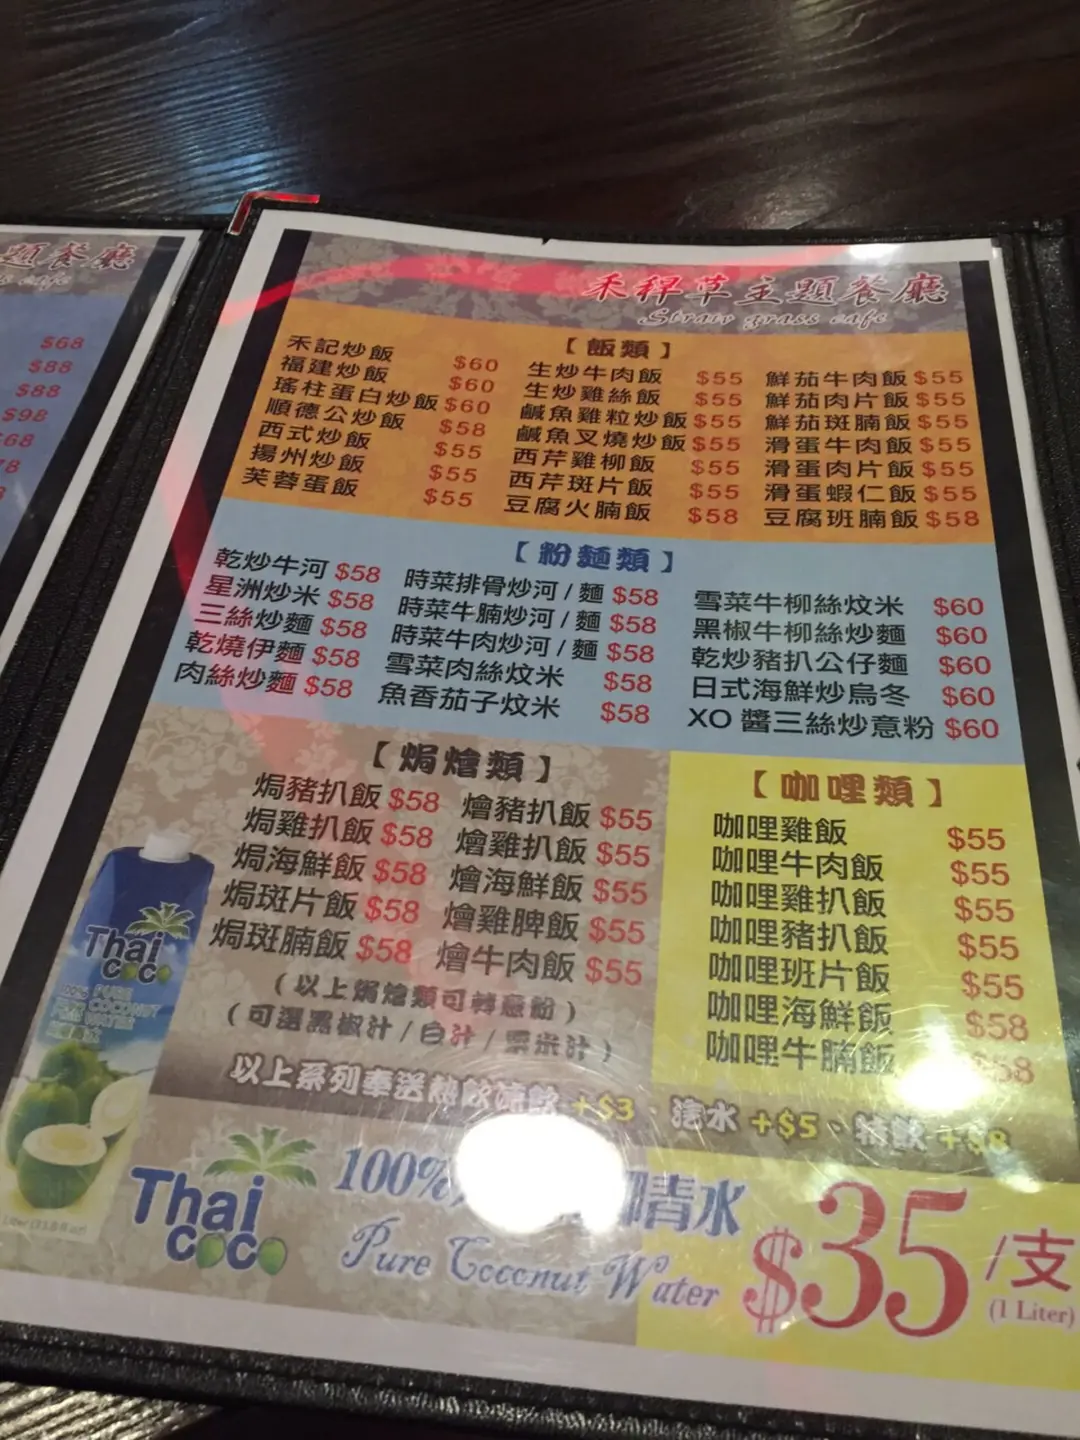 題餐廳
$68
$88
$88
$98
禾稈草主題餐廳
Straw grass cafe
【飯類】
禾記炒飯 $60
福建炒飯 $60
瑤柱蛋白炒飯 $60
順德公炒飯 $58
西式炒飯 $55
揚州炒飯 $55
芙蓉蛋飯 $55
生炒牛肉飯 $55
生炒雞絲飯 $55
鹹魚雞粒炒飯 $55
鹹魚叉燒炒飯 $55
西芹雞柳飯 $55
西芹斑片飯 $55
豆腐火腩飯 $58
鮮茄牛肉飯 $55
鮮茄肉片飯 $55
鮮茄斑腩飯 $55
滑蛋牛肉飯 $55
滑蛋肉片飯 $55
滑蛋蝦仁飯 $55
豆腐班腩飯 $58
【粉麵類】
乾炒牛河 $58
星洲炒米 $58
三絲炒麵 $58
乾燒伊麵 $58
肉絲炒麵 $58
時菜排骨炒河 / 麵 $58
時菜牛腩炒河 / 麵 $58
時菜牛肉炒河 / 麵 $58
雪菜肉絲炆米 $58
魚香茄子炆米 $58
雪菜牛柳絲炆米 $60
黑椒牛柳絲炒麵 $60
乾炒豬扒公仔麵 $60
日式海鮮炒烏冬 $60
XO 醬三絲炒意粉 $60
【焗燴類】
焗豬扒飯 $58
焗雞扒飯 $58
焗海鮮飯 $58
焗斑片飯 $58
焗斑腩飯 $58
燴豬扒飯 $55
燴雞扒飯 $55
燴海鮮飯 $55
燴雞脾飯 $55
燴牛肉飯 $55
（以上焗燴類可轉意粉）
（可選黑椒汁 / 白汁 / 粟米汁）
【咖哩類】
咖哩雞飯 $55
咖哩牛肉飯 $55
咖哩雞扒飯 $55
咖哩豬扒飯 $55
咖哩班片飯 $55
咖哩海鮮飯 $58
咖哩牛腩飯 $58
以上系列奉送熱飲凍飲 +$3、汽水 +$5、特飲 +$8
Thai coco
100% PURE COCONUT WATER
Thai coco
100% 椰青水
Pure Coconut Water
$35/支
(1 Liter)